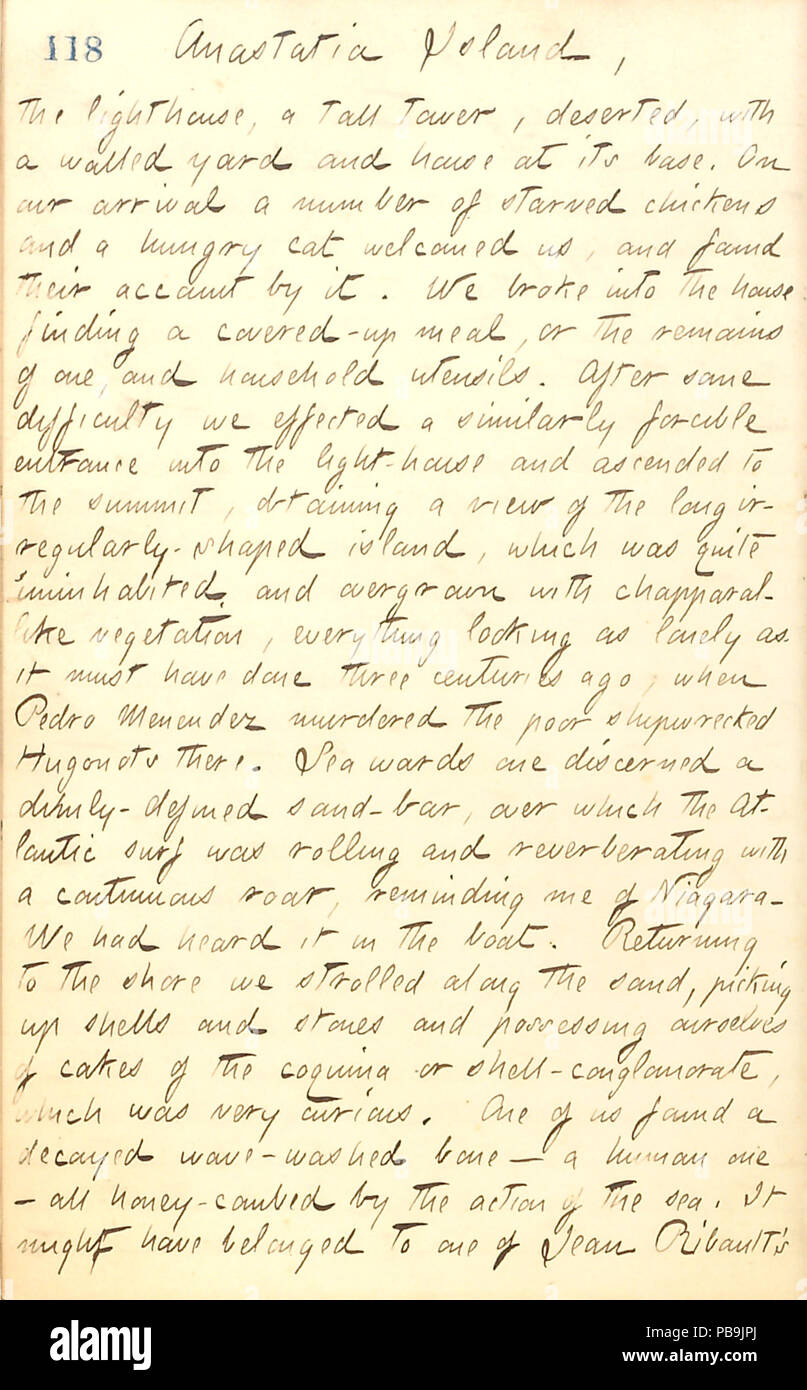 118 Anastatia Island,
the lighthouse, a tall tower, deserted, with
a walled yard and house at its base. On
our arrival a number of starved chickens
and a hungry cat welcomed us, and found
their account by it. We broke into the house
finding a covered-up meal, or the remains
of one, and household utensils. After some
difficulty we effected a similarly forcible
entrance into the light-house and ascended to
the summit, obtaining a view of the long ir-
regularly-shaped island, which was quite
uninhabited, and overgrown with chapparal-
like vegetation, everything looking as lonely as
it must have done three centuries ago, when
Pedro Menendez murdered the poor shipwrecked
Hugonots there. Sea wards one discerned a
dimly-defined sand-bar, over which the At-
lantic surf was rolling and reverberating with
a continuous roar, reminding me of Niagara-
We had heard it in the boat. Returning
to the shore we strolled along the sand, picking
up shells and stones and possessing ourselves
of cakes of the coquina or shell-conglomorate,
which was very curious. One of us found a
decayed wave-washed bone — a human one
— all honey-combed by the action of the sea. It
might have belonged to one of Jean Ribault's
alamy
Image ID: PB9JPJ
www.alamy.com